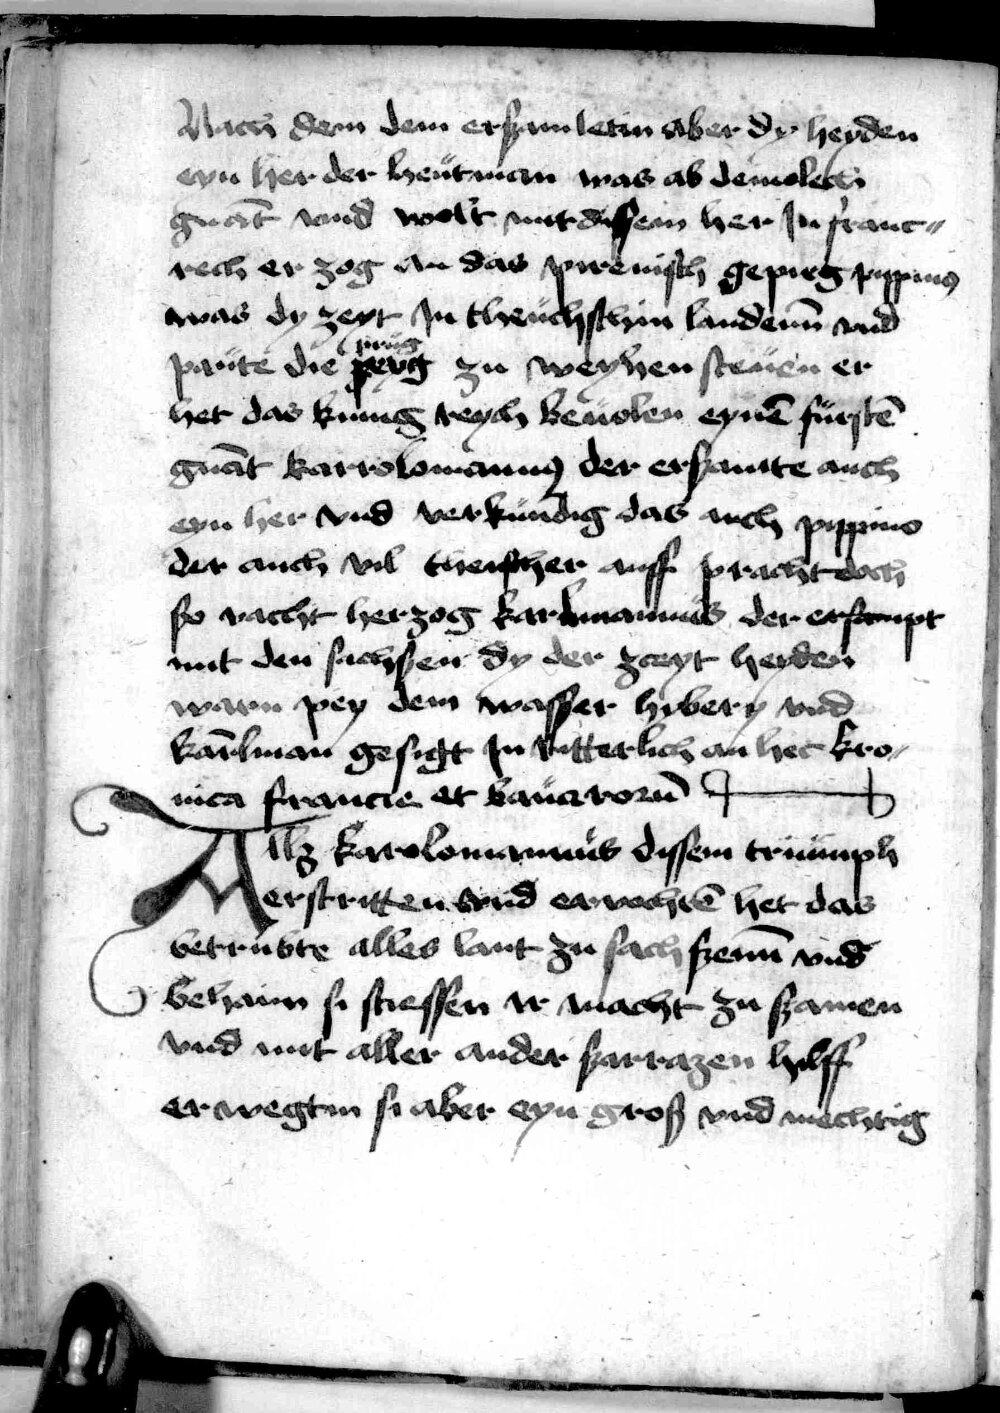 Nach dem dem erszamletin aber dy heyden
eyn her der heütman was abdemelech
gnāt vnd wolt mit dissem her In franc=
rech er zog an das pirenisch gepirg pippinus
was dy zeyt In theüchschin landenn vnd
paüte die prüg zu weyhensteuen er
het das kunig reych beuolen eynē fürstē
gnāt karrolomannus der erszamte auch
eyn her vnd verkündig das auch pippino
der auch vil theuscher auff pracht doch
so vacht herzog karlmannus der ersampt
mit den sachszen dy der zceyt heyden
warn pey dem wasszer hybery vnd
karlman gesigtt In ritterlich an hec kro=
nica francie et bauarorū
Alz karolomannüs dissem triumph
erstritten vnd ervochtē het das
betrubte alles lant zu sachszenn vnd
behaim si stiessen ir macht zu szamen
vnd mit aller ander szarrazen hilff
erwegtin si aber eyn grosz vnd mechtig